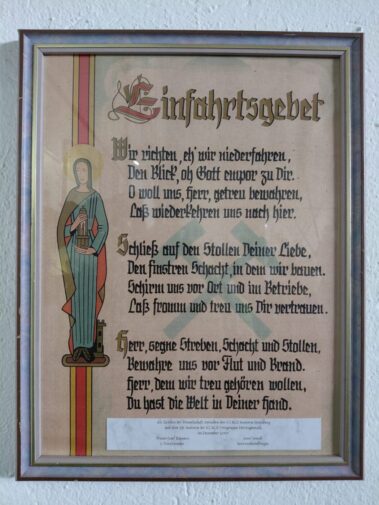 Einfahrtsgebet
Wir richten, eh' wir niederfahren,
Den Blick, oh Gott empor zu Dir.
O woll uns, Herr, getreu bewahren,
Laß wiederkehren uns nach hier.
Schließ auf den Stollen Deiner Liebe,
Den finstren Schacht, in dem wir bauen.
Schirm uns vor Ort und im Betriebe,
Laß fromm und treu uns Dir vertrauen.
Herr, segne Streben, Schacht und Stollen,
Bewahre uns vor Flut und Brand.
Herr, dem wir treu gehören wollen,
Du hast die Welt in Deiner Hand.